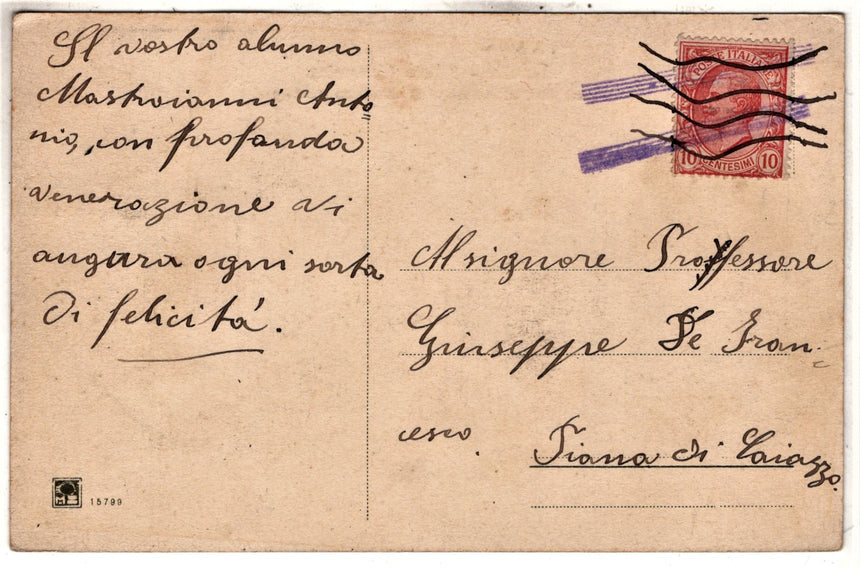 Il vostro alunno
Mastroianni Anto=
nio, con profonda
venerazione vi
augura ogni sorta
di felicità.
POSTE ITALIANE
10 CENTESIMI 10
Al signore Professore
Giuseppe De Fran-
cesco.
Piana di Caiazzo.
M
15799